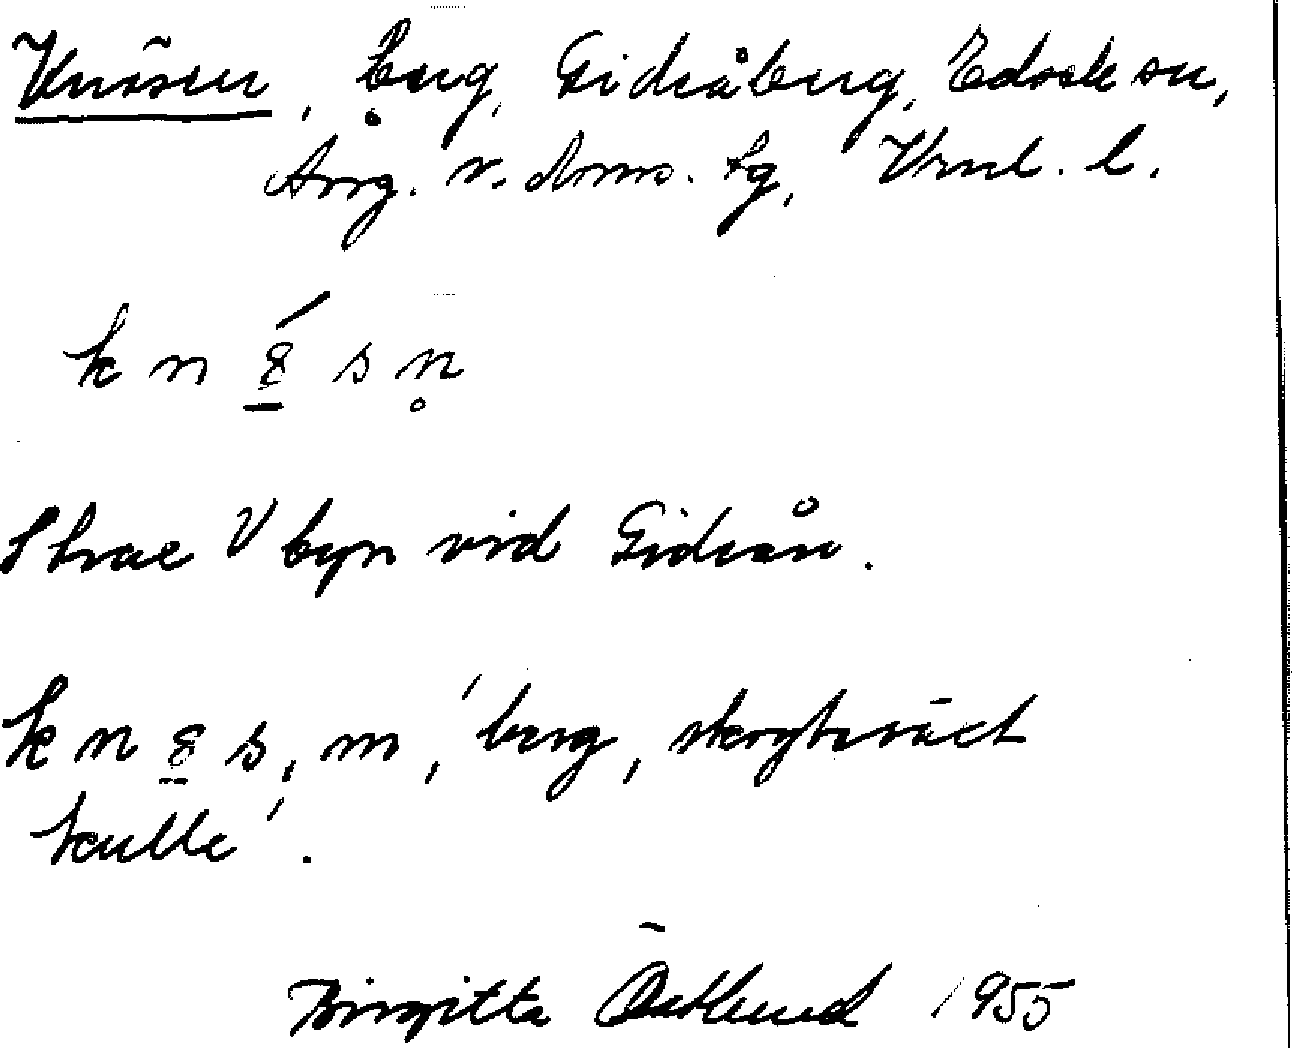 Knösen, berg, Gideåberg, Edsele sn,
Ång. v. doms. fg, Vrnl. l.
k n ȣ́ s n̥
Strax V byn vid Gideån.
k n ȣ s, m, 'berg, skogbeväxt
kulle'.
Birgitta Östlund 1955